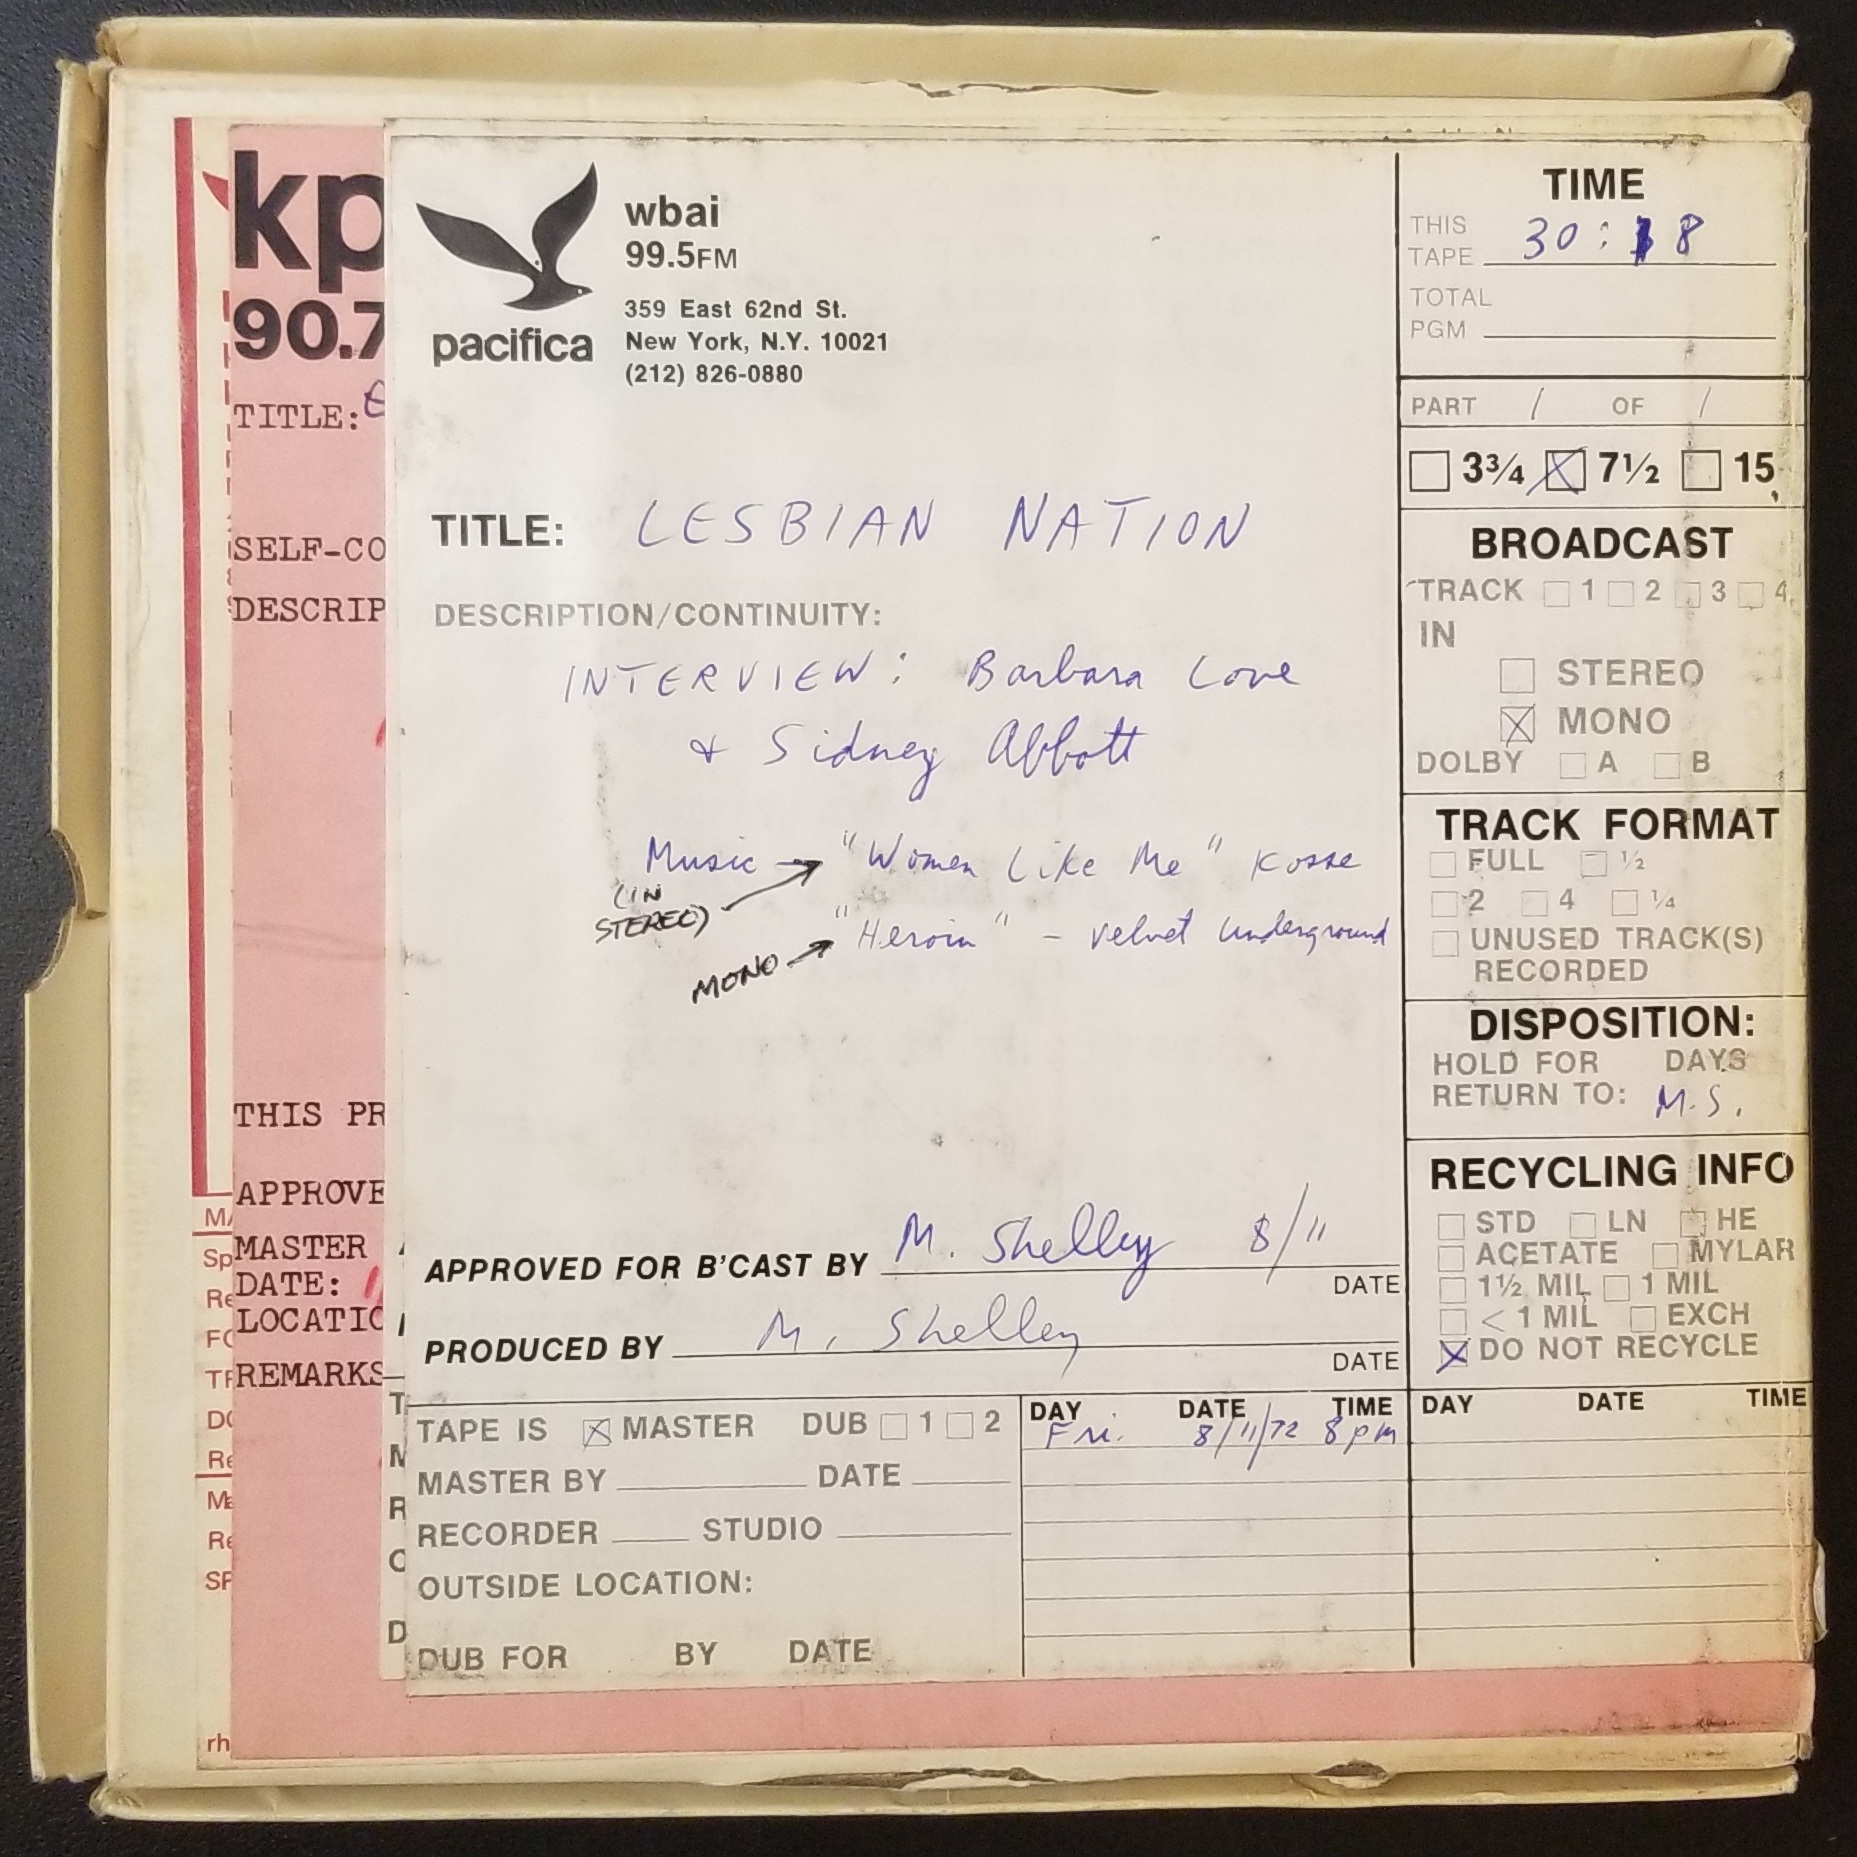 kp
90.7
TITLE:
SELF-CO
DESCRIP
THIS PR
APPROVE
MASTER
DATE:
LOCATIO
REMARKS
MA
Sp
Re
FO
TR
DO
Re
Ma
Re
SP
rh
T
M
R
O
D
pacifica
wbai
99.5FM
359 East 62nd St.
New York, N.Y. 10021
(212) 826-0880
TITLE: LESBIAN NATION
DESCRIPTION/CONTINUITY:
INTERVIEW: Barbara Love
& Sidney Abbott
Music → "Women Like Me" Kosse
(IN
STEREO)
"Heroin" - velvet underground
MONO →
APPROVED FOR B'CAST BY M. Shelley 8/11
DATE
PRODUCED BY M. Shelley
DATE
TAPE IS MASTER DUB 1 2
MASTER BY DATE
RECORDER STUDIO
OUTSIDE LOCATION:
DUB FOR BY DATE
DAY DATE TIME
Fri. 8/11/72 8pm
TIME
THIS
TAPE 30: 8
TOTAL
PGM
PART 1 OF 1
3¾ 7½ 15
BROADCAST
TRACK 1 2 3 4
IN
STEREO
MONO
DOLBY A B
TRACK FORMAT
FULL ½
2 4 ¼
UNUSED TRACK(S)
RECORDED
DISPOSITION:
HOLD FOR DAYS
RETURN TO: M.S.
RECYCLING INFO
STD LN HE
ACETATE MYLAR
1½ MIL 1 MIL
< 1 MIL EXCH
DO NOT RECYCLE
DAY DATE TIME